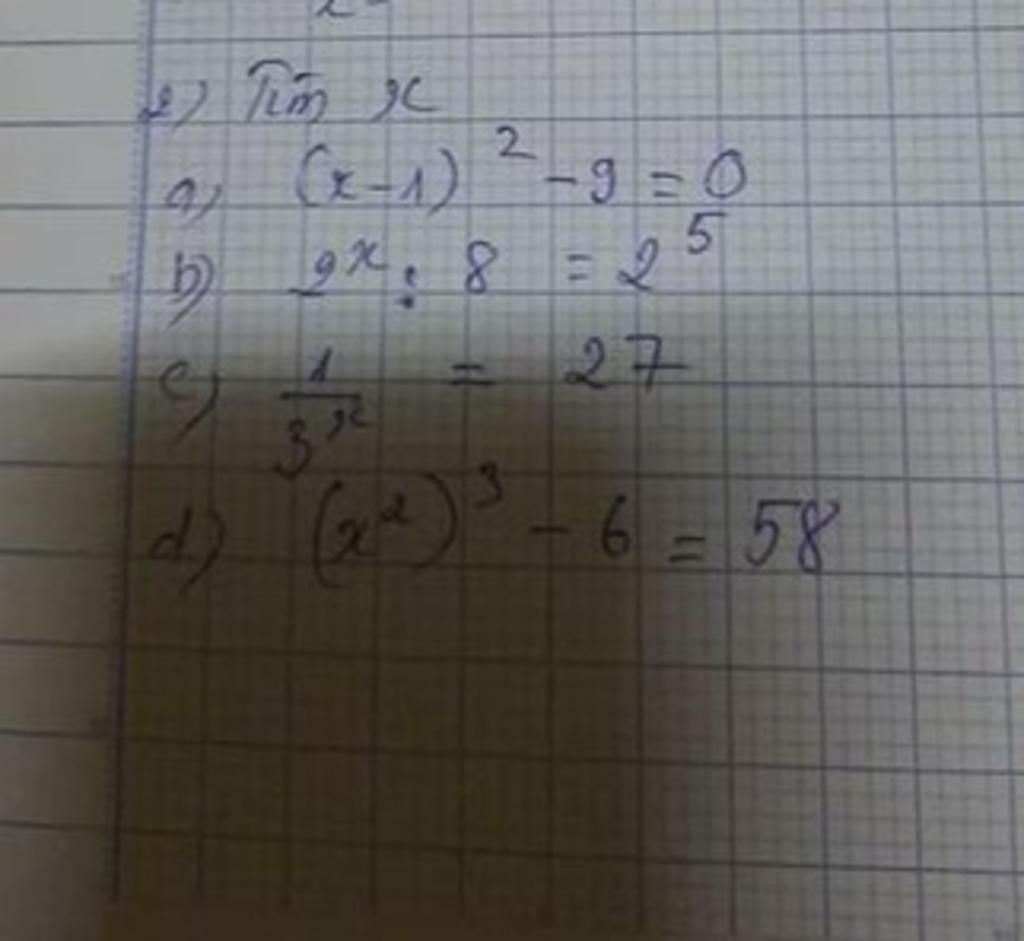 2) Tìm x
a) (x-1)² - 9 = 0
b) 2ˣ : 8 = 2⁵
c) 1/3ˣ = 27
d) (x²)³ - 6 = 58